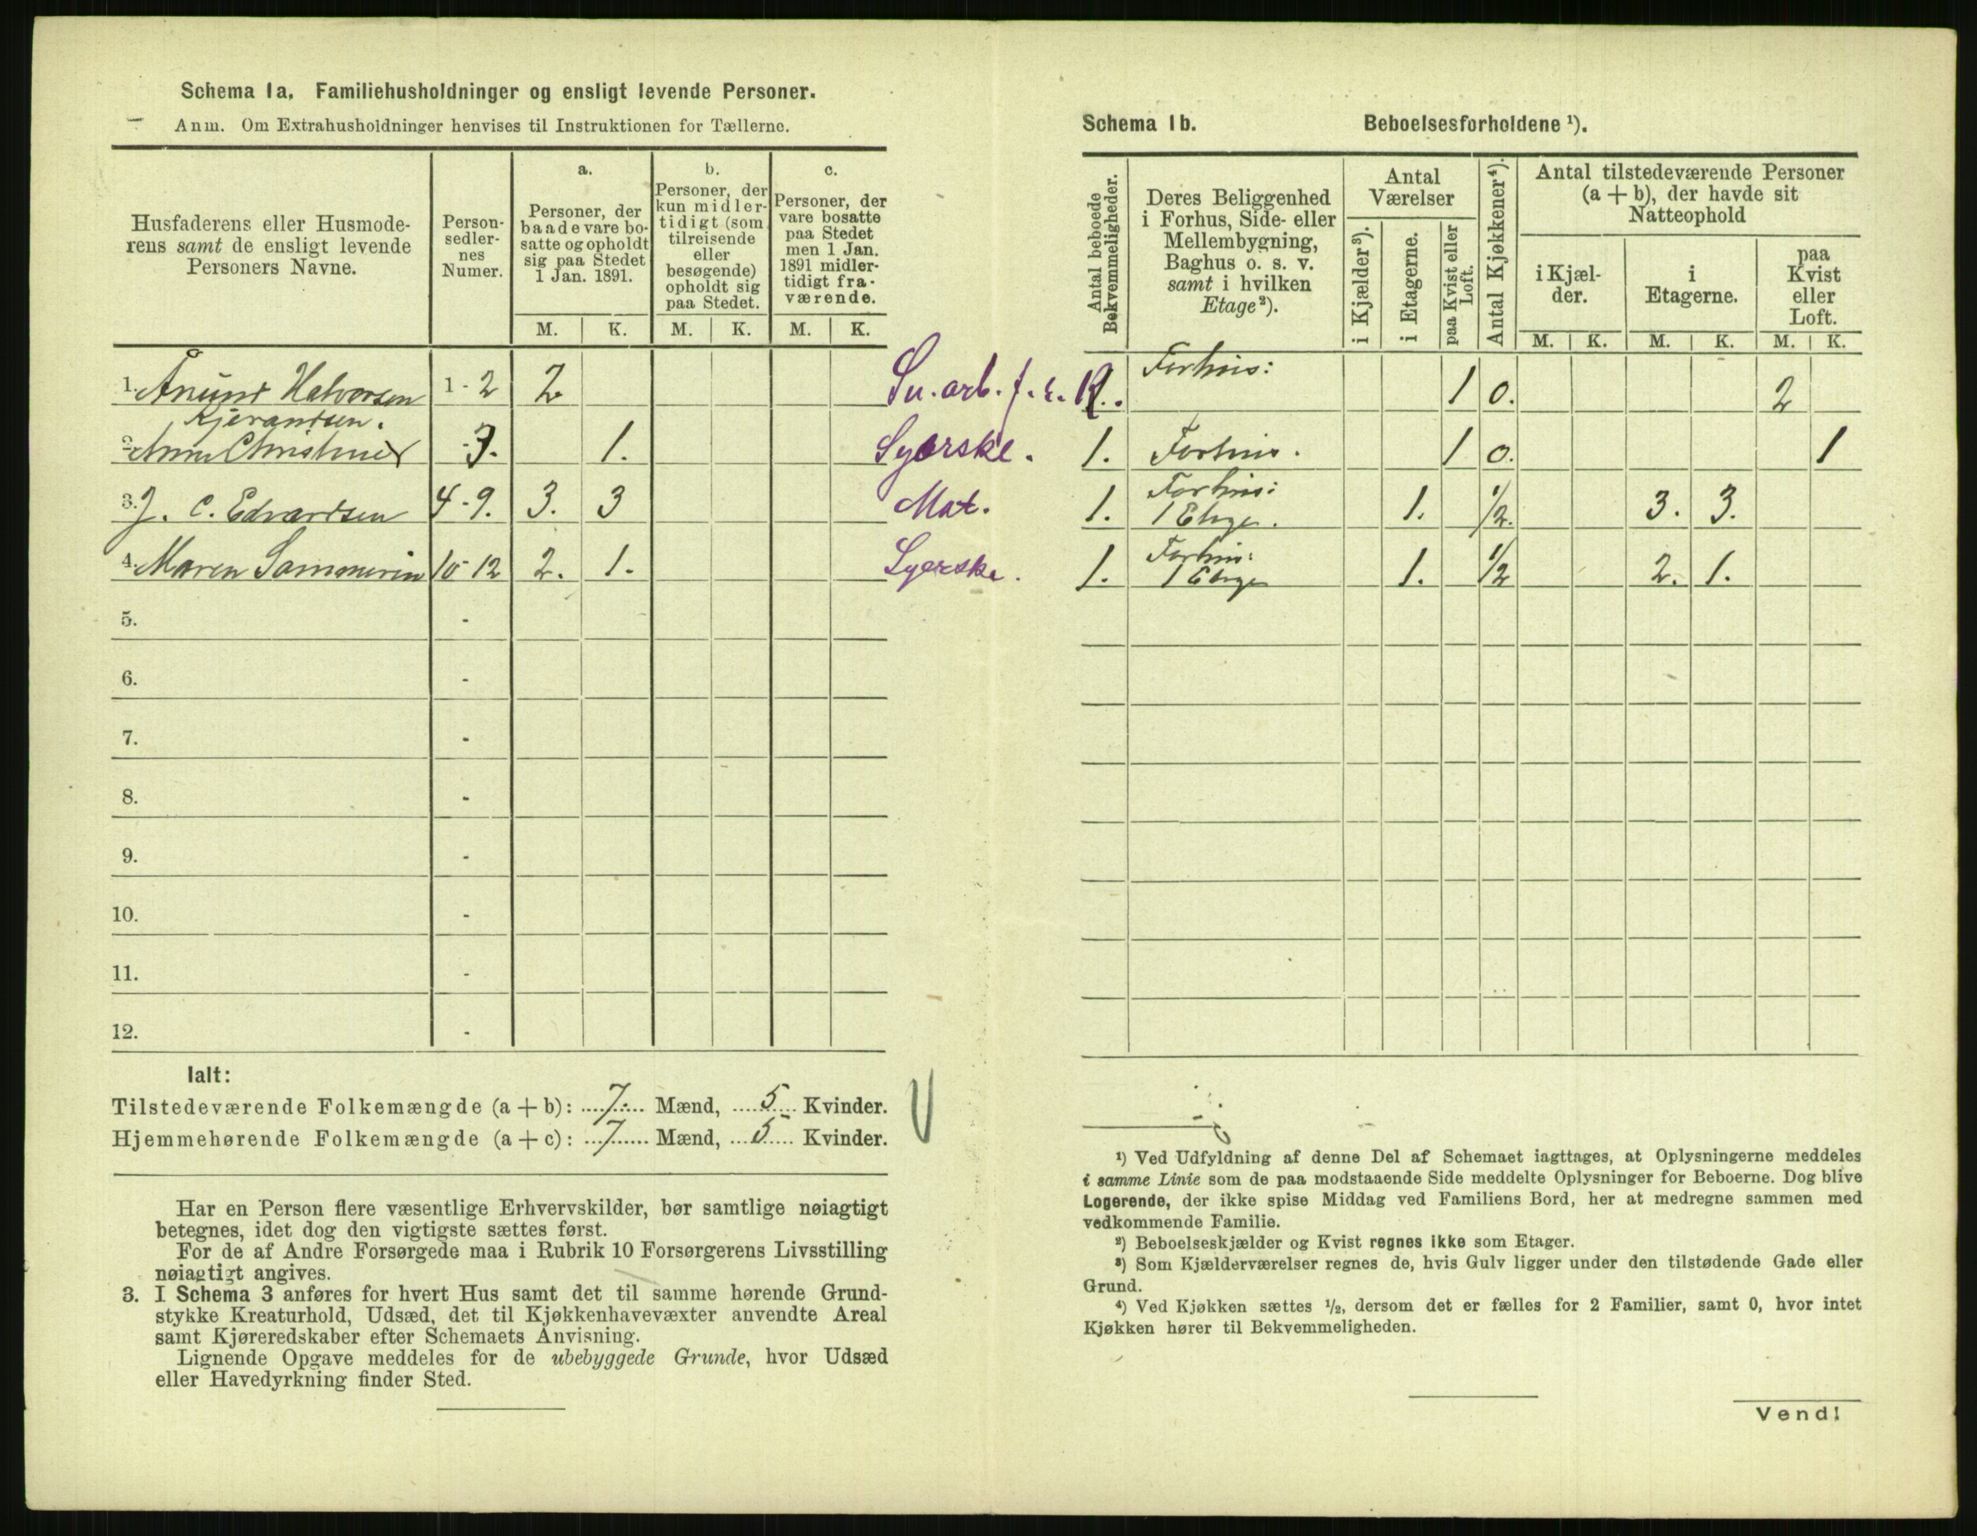 Schema 1a. Familiehusholdninger og ensligt levende Personer.
Anm. Om Extrahusholdninger henvises til Instruktionen for Tællerne.
Husfaderens eller Husmoderens samt de ensligt levende Personers Navne.
Person-sedlernes Numer.
a.
Personer, der baade vare bosatte og opholdt sig paa Stedet 1 Jan. 1891.
b.
Personer, der kun midlertidigt (som tilreisende eller besøgende) opholdt sig paa Stedet.
c.
Personer, der vare bosatte paa Stedet men 1 Jan. 1891 midlertidigt fraværende.
M. K. M. K. M. K.
1. Anund Halvorsen 1 - 2 2 Sn. arb. f. e. R.
Kjerandsen.
2. Anne Christine - 3. 1. Syerske.
3. J. C. Edvardsen 4 - 9. 3. 3 Mat.
4. Maren 10 - 12 2. 1. Syerske.
5. -
6. -
7. -
8. -
9. -
10. -
11. -
12. -
Ialt:
Tilstedeværende Folkemængde (a + b): 7. Mænd, 5 Kvinder.
Hjemmehørende Folkemængde (a + c): 7 Mænd, 5 Kvinder.
Har en Person flere væsentlige Erhvervskilder, bør samtlige nøiagtigt
betegnes, idet dog den vigtigste sættes først.
For de af Andre Forsørgede maa i Rubrik 10 Forsørgerens Livsstilling
nøiagtigt angives.
3. I Schema 3 anføres for hvert Hus samt det til samme hørende Grund-
stykke Kreaturhold, Udsæd, det til Kjøkkenhavevæxter anvendte Areal
samt Kjøreredskaber efter Schemaets Anvisning.
Lignende Opgave meddeles for de ubebyggede Grunde, hvor Udsæd
eller Havedyrkning finder Sted.
Schema 1b. Beboelsesforholdene ¹).
Antal beboede Bekvemmeligheder.
Deres Beliggenhed i Forhus, Side- eller Mellembygning, Baghus o. s. v. samt i hvilken Etage²).
Antal Værelser
i Kjælder³).
i Etagerne.
paa Kvist eller Loft.
Antal Kjøkkener⁴).
Antal tilstedeværende Personer (a + b), der havde sit Natteophold
i Kjælder.
i Etagerne.
paa Kvist eller Loft.
M. K. M. K. M. K.
1. Forhus: 1 0. 2
1. Forhus. 1 0. 1
1. Forhus: 1 Etage. 1. 1/2. 3. 3.
1. Forhus: 1 Etage 1. 1/2 2. 1.
¹) Ved Udfyldning af denne Del af Schemaet iagttages, at Oplysningerne meddeles
i samme Linie som de paa modstaaende Side meddelte Oplysninger for Beboerne. Dog blive
Logerende, der ikke spise Middag ved Familiens Bord, her at medregne sammen med
vedkommende Familie.
²) Beboelseskjælder og Kvist regnes ikke som Etager.
³) Som Kjælderværelser regnes de, hvis Gulv ligger under den tilstødende Gade eller
Grund.
⁴) Ved Kjøkken sættes ½, dersom det er fælles for 2 Familier, samt 0, hvor intet
Kjøkken hører til Bekvemmeligheden.
Vend!